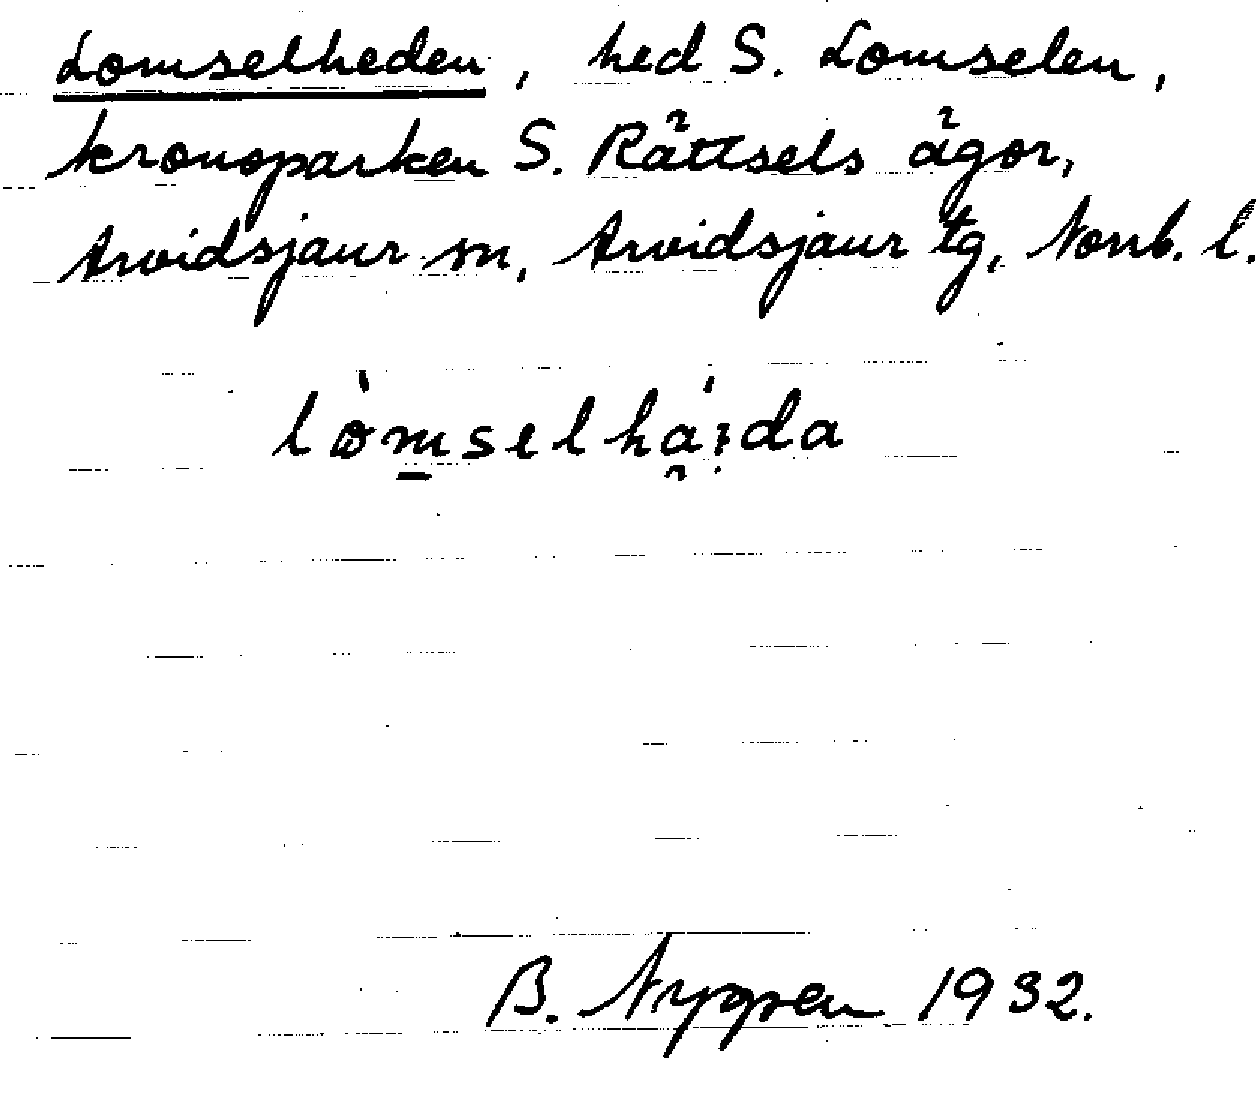 Lomselheden, hed S. Lomselen,
kronoparken S. Rättsels ägor,
Arvidsjaur sn, Arvidsjaur tg, Norrb. l.
B. Nygren 1932.